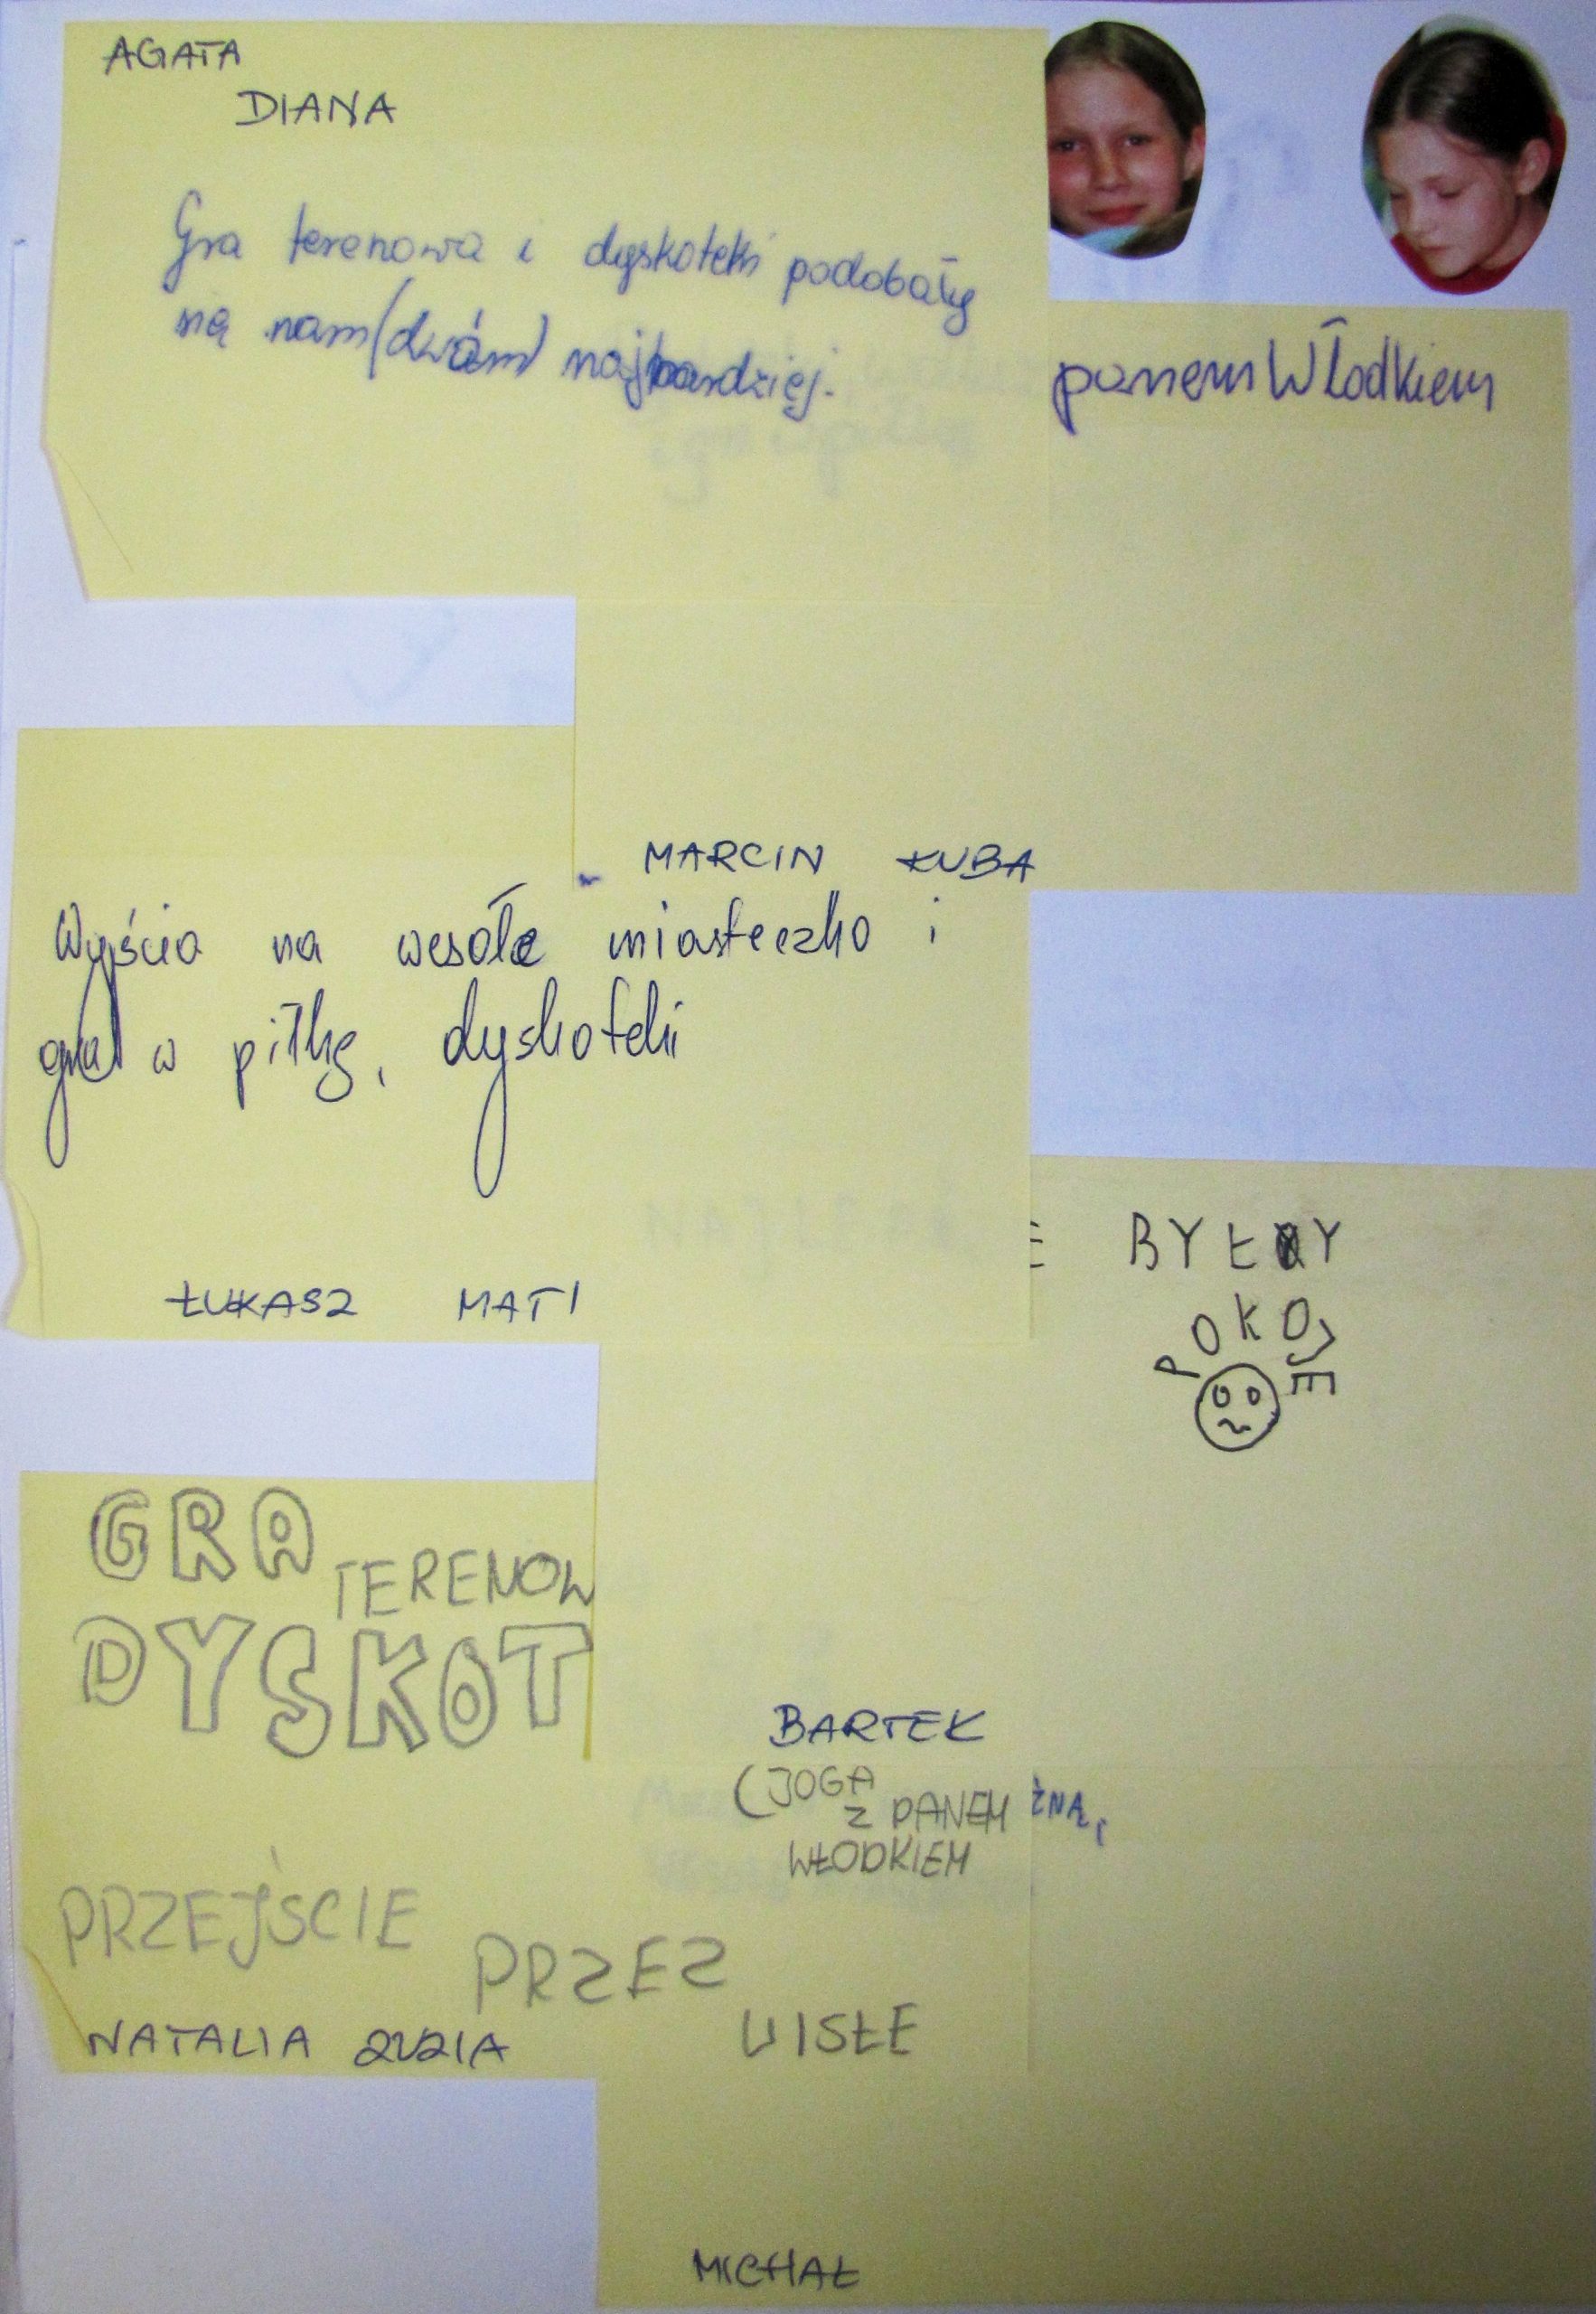 AGATA
DIANA
Gra terenowa i dyskoteki podobały
się nam (dwóm) najbardziej.
panem Włodkiem
MARCIN KUBA
Wyścia na wesołe miasteczko i
gra w piłkę, dyskoteki
ŁUKASZ MATI
E BYŁY
POKOJE
GRA
TERENOW
DYSKOT
BARTEK
(JOGA
Z PANEM
WŁODKIEM
ŻNA,
PRZEJŚCIE
PRZEZ
WISŁE
NATALIA ZUZIA
MICHAŁ